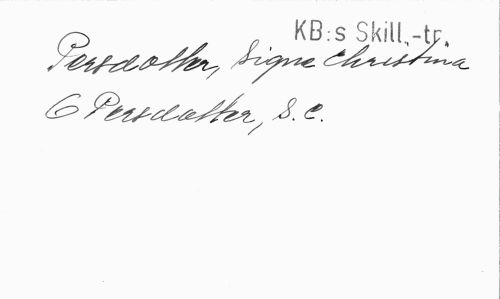 KB:s Skill.-tr.
Persdotter, Signe Christina
G Persdotter, S. C.